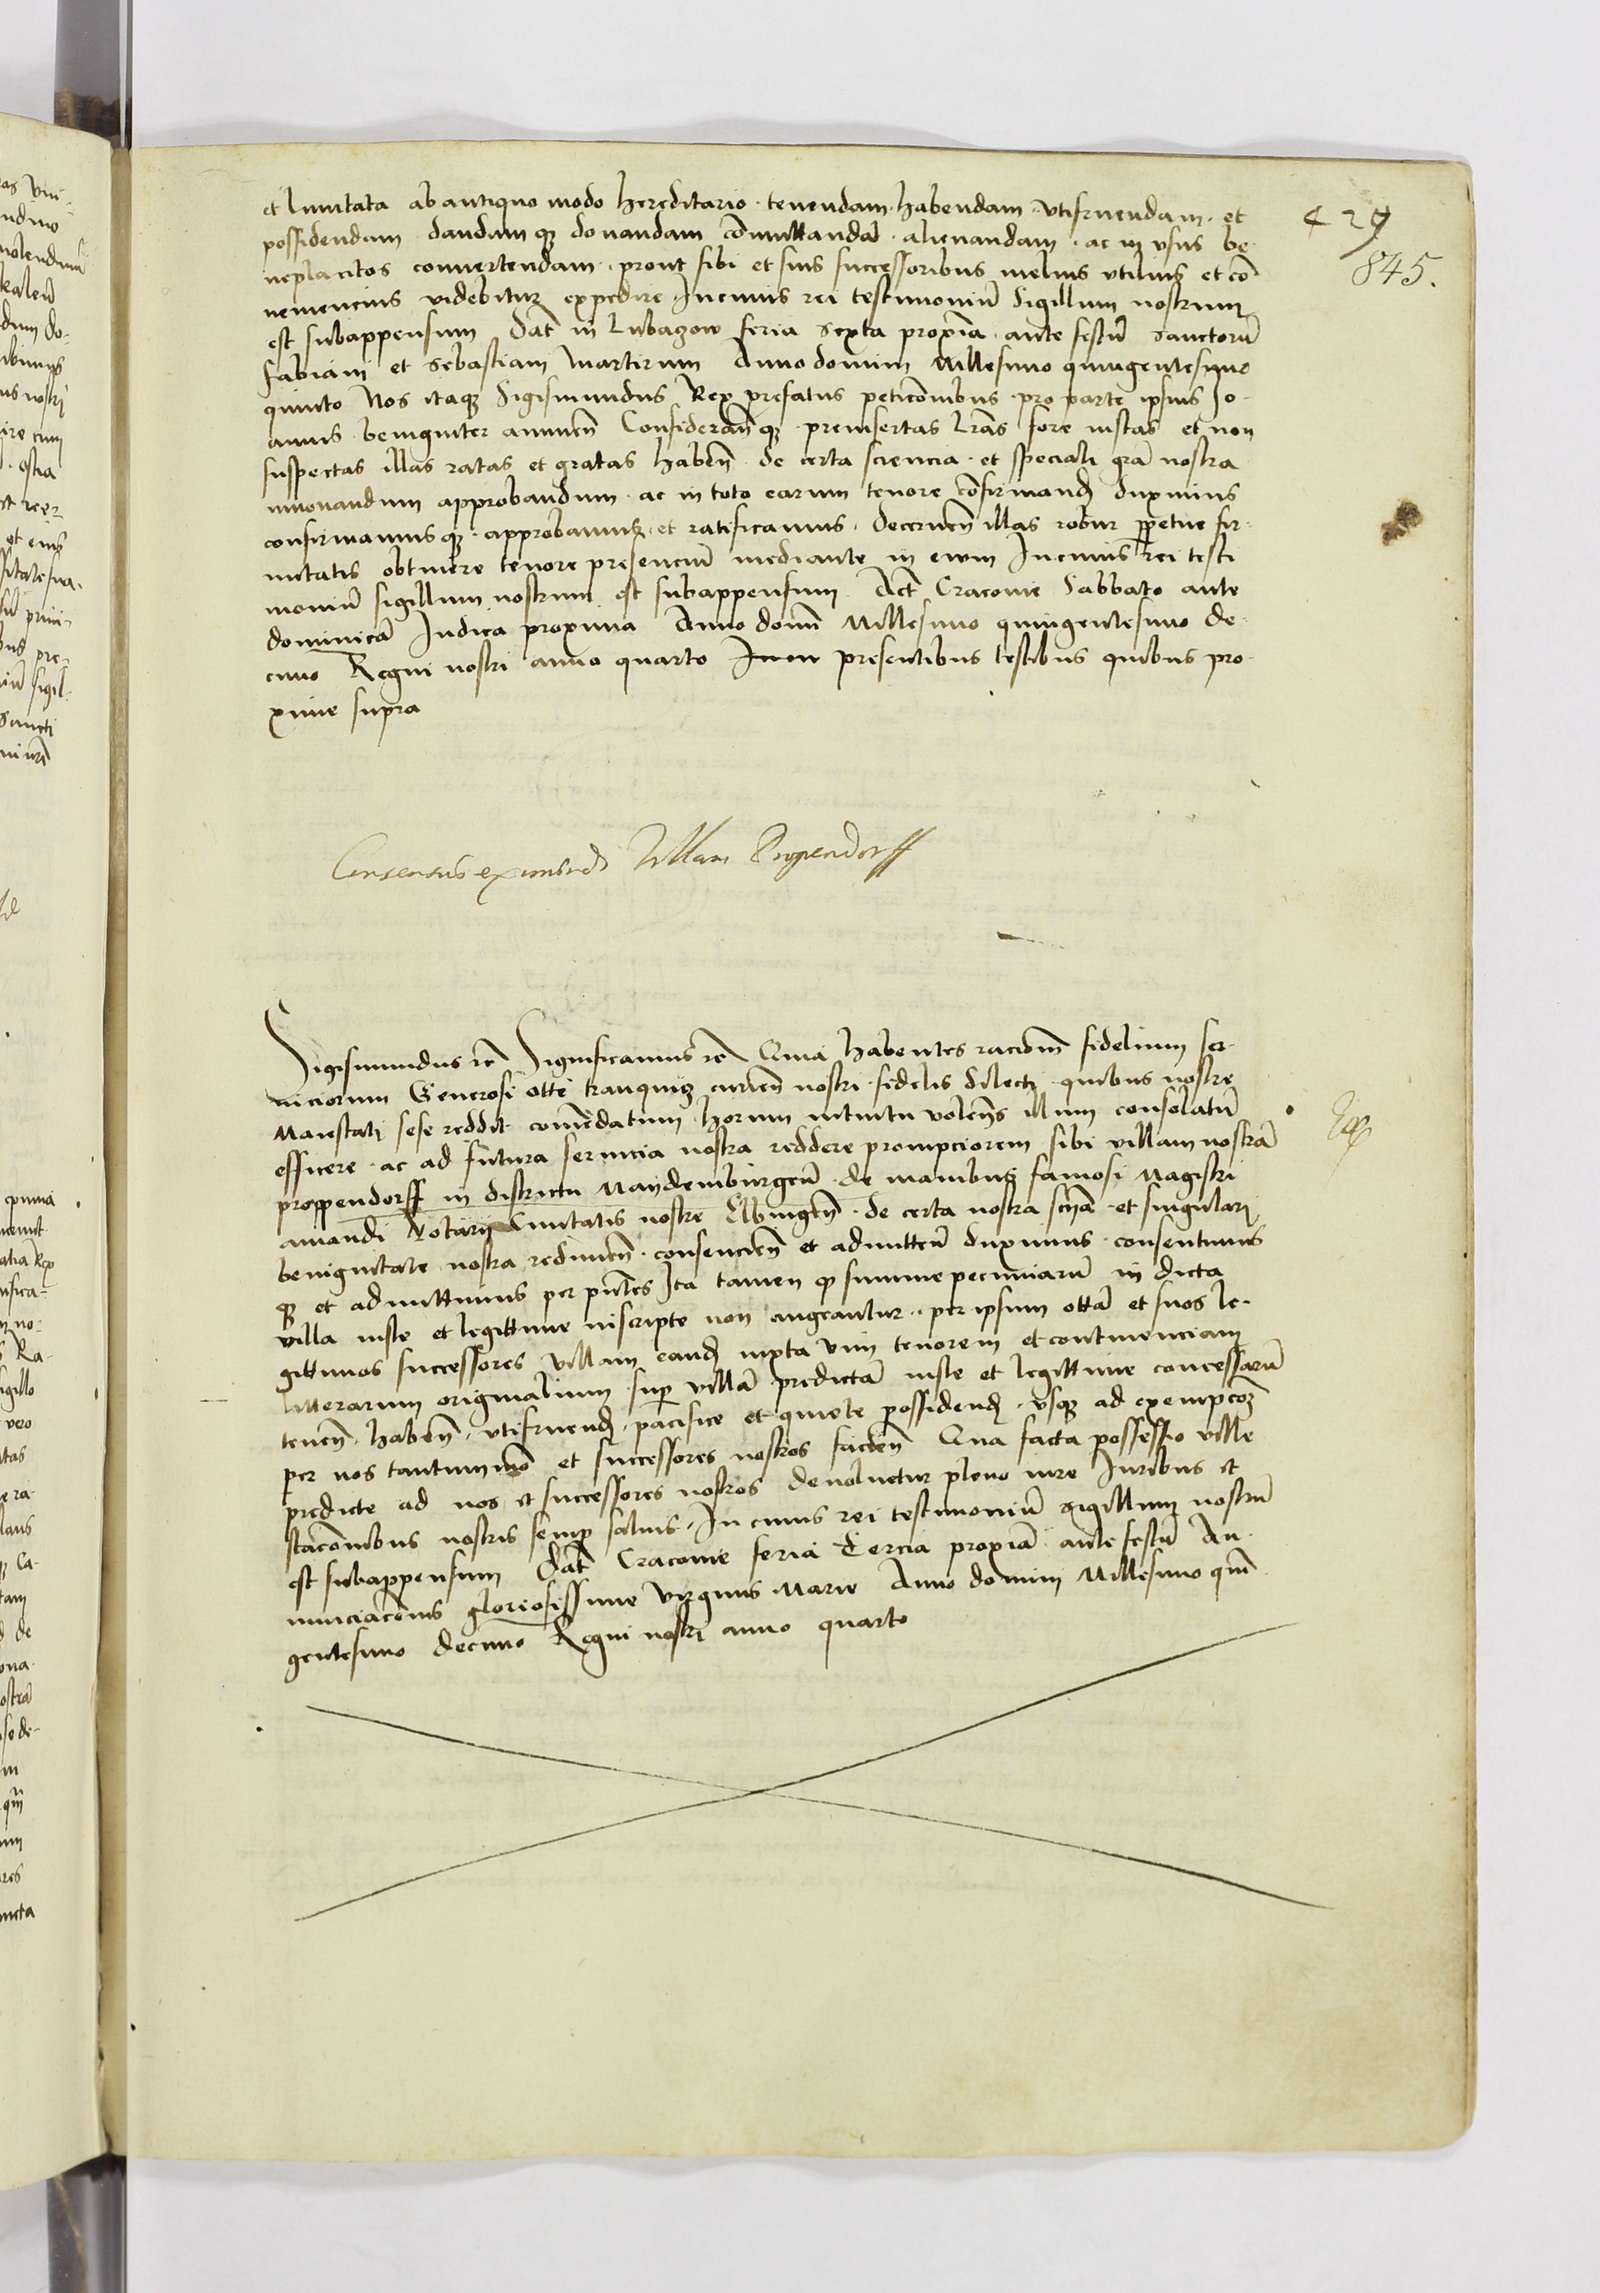 429
845.
et limitata ab antiquo modo hereditario · tenendam · habendam · vtifruendam · et
possidendam dandam qȝ donandam cōmittandā · alienandam · ac in vsus be-
neplacitos conuertendam · prout sibi et suis successoribus melius vtilius et cō
ueniencius videbitur expedire · In cuius rei testimoniū Sigillum nostrum
est subappensum Dat̄ in Lubaȝow feria Sexta proxīa · ante festū Sanctorū
fabiani et Sebastiani Martirum Anno domini Millesimo quingentesimo
quinto Nos itaqȝ Sigismundus Rex prefatus peticōnibus · pro parte ipsius Jo-
annis · benigniter annuen̄ Consideran̄qȝ · preinsertas lrās fore iustas et non
suspectas illas ratas et gratas haben̄ · de certa sciencia · et speciali grā nostra
innouandum approbandum · ac in toto earum tenore cōfirmand̄ duximus
confirmamus qȝ · approbamus · et ratificamus · decernen̄ illas robur ppetue fir-
mitatis obtinere tenore presenciū mediante in ewm In cuius rei testi
moniū sigillum nostrum est subappensum Act̄ Cracouie Sabbato ante
dominicā Judica proxima Anno domī Millesimo quingentesimo de-
cimo Regni nostri anno quarto presentibus testibus quibus pro-
xime supra
Consensus eximend Villam Propendorff
Sigismundus rc̄ Significamus rc̄ Quia habentes raciōem fidelium ser-
uiciorum Generosi otte tranquiȝ curien̄ nostri · fidelis dilecti · quibus nostre
Maiestati sese reddit comēdatum · horum intuitu volen̄s illum consolatū
efficere · ac ad futura seruicia nostra reddere prompciorem sibi villam nostrā
proppendorff in districtu Maydemburgen̄ · de manibus famosi Magistri
amandi Notarij Ciuitatis nostre Elbingen̄ · de certa nostra sciā · et singulari
benignitate nostra redimen̄ · consencien̄ et admitten̄ duximus · consentimus
qȝ et admittimus per pn̄tes Ita tamen qȝ summe pecuniarū in dicta
villa iuste et legittime inscripte non augeantur · per ipsum ottā et suos le-
gittimos successores villam eand̄ iuxta vim tenorem et continenciam
litterarum originalium sup villā predictā iuste et legittime concessarū
tenen̄ · haben̄ · vtifruend̄ · pacifice et quiete possidend̄ · vsqȝ ad exempcōȝ
per nos tantummō et successores nostros facien̄ Qua facta possessio ville
predicte ad nos et successores nostros deuoluetur pleno iure Iuribus et
stacōnibus nostris semp saluis · In cuius rei testimoniū sigillum nostrū
est subappensum Dat̄ Cracouie feria Tercia proxīa ante festū An-
nunciacōnis gloriosissime virginis Marie Anno domini Millesimo quī
gentesimo decimo Regni nostri anno quarto